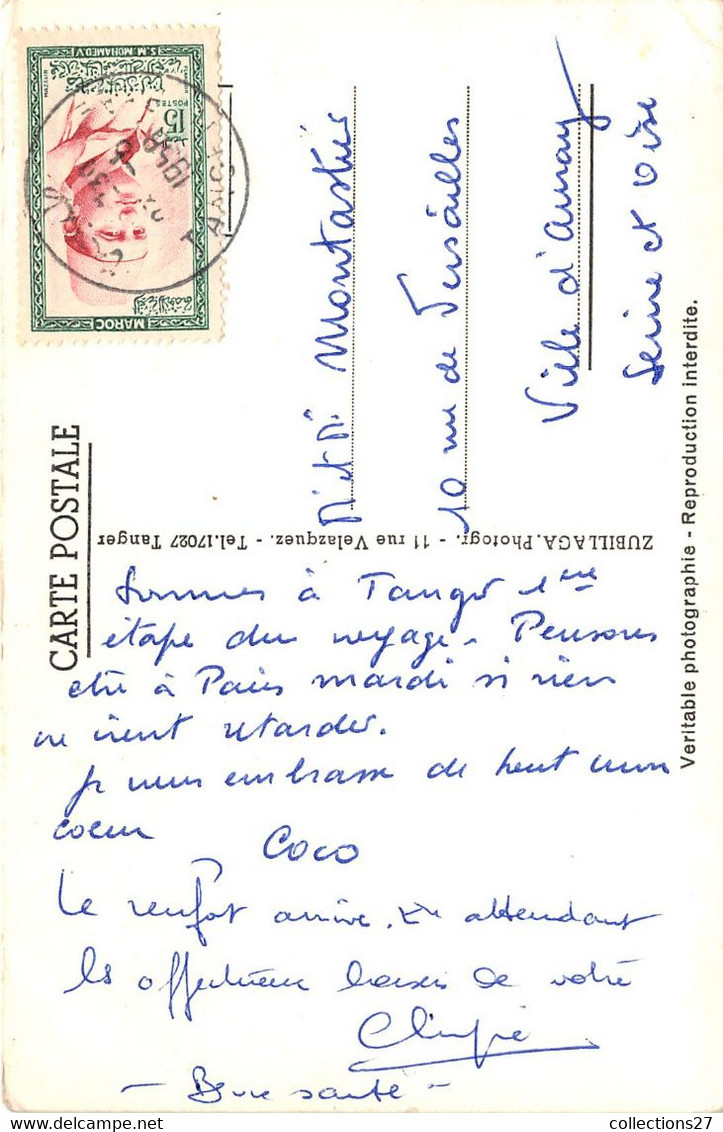 S.M. MOHAMED.V
POSTES
15
MAROC
TANGER
1958
CARTE POSTALE
10 rue de Versailles
Ville d'Avray
Seine et Oise
ZUBILLAGA.Photogr. - 11 rue Velazquez. - Tel.17027 Tanger
Veritable photographie - Reproduction interdite.
Sommes à Tanger 1ère
étape du voyage. Pensons
être à Paris mardi si rien
ne vient retarder.
Je vous embrasse de tout mon
coeur
Coco
Le renfort arrive. En attendant
les affectueux baisers de votre
- Bonne santé -
collections27